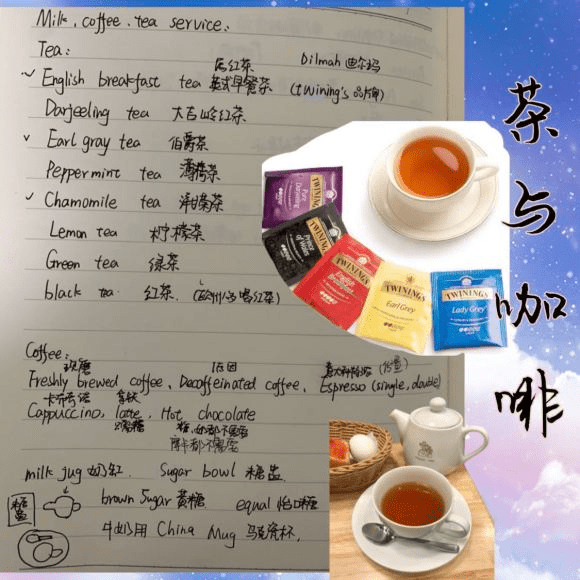 Milk, coffee, tea service:
Tea:
属红茶 Dilmah 迪尔玛
English breakfast tea 英式早餐茶 (twining's 品牌)
Darjeeling tea 大吉岭红茶
Earl gray tea 伯爵茶
Peppermint tea 薄荷茶
Chamomile tea 甘菊茶
Lemon tea 柠檬茶
Green tea 绿茶
black tea 红茶. (欧洲人喝红茶)
Coffee:
现磨 低因 意大利特浓 (份量)
Freshly brewed coffee, Decaffeinated coffee, Espresso (single, double)
卡布奇诺 拿铁
Cappuccino, latte, Hot chocolate
糖、奶都不需要
milk jug 奶缸 Sugar bowl 糖盅
糖盅
brown Sugar 黄糖 equal 怡口糖
牛奶用 China Mug 马克瓷杯.
茶与咖啡
TWININGS
Pure Darjeeling
TWININGS
Prince of Wales
TWININGS
English Breakfast
TWININGS
Earl Grey
TWININGS
Lady Grey